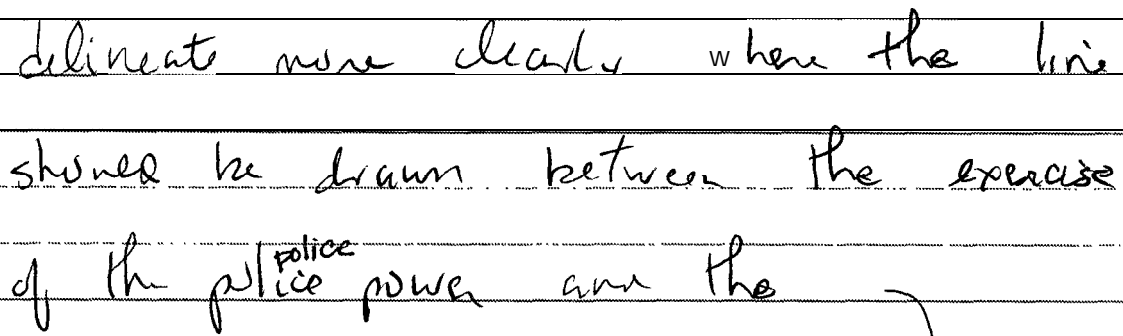 delineate more clearly where the line
should be drawn between the exercise
of the police police power and the